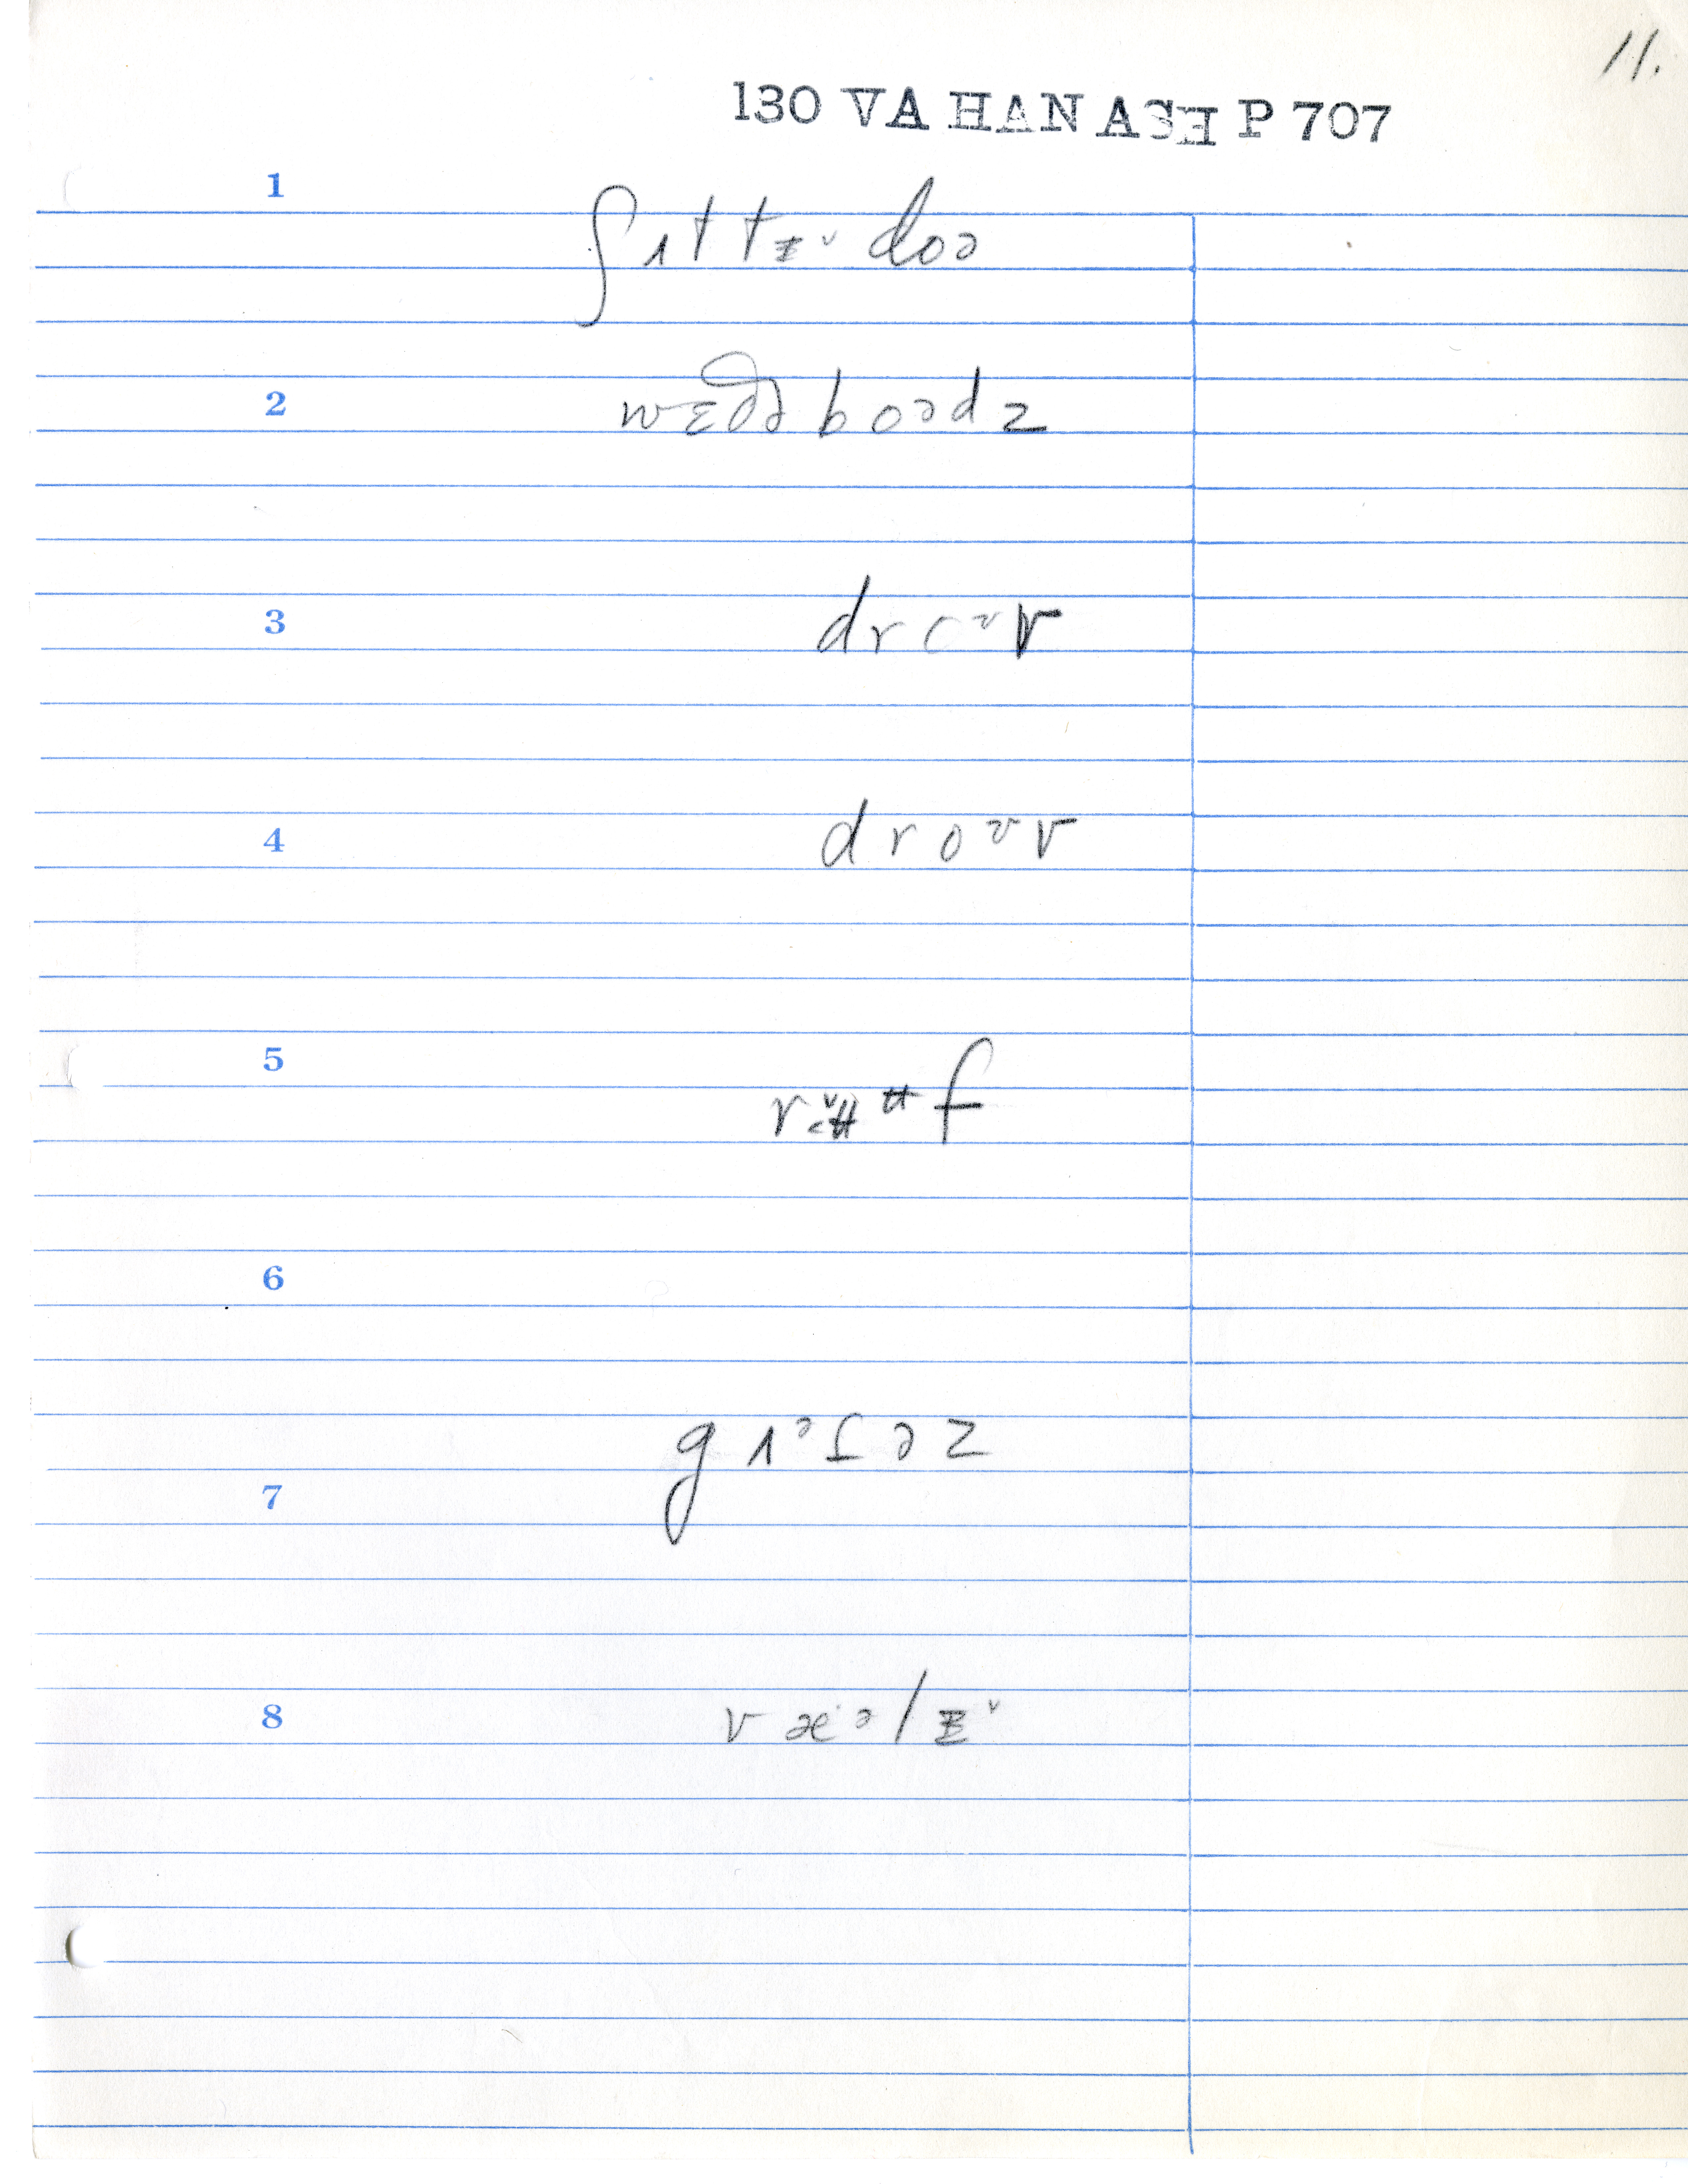 11.
130 VA HAN ASH P 707
1
ʃɪttᵻ˅ doə
2
wɛðə boədz
3
drcᶷv
4
droᶷv
5
f
6
7
gɪᵊʃəz
8
væᵊlᵻ˅